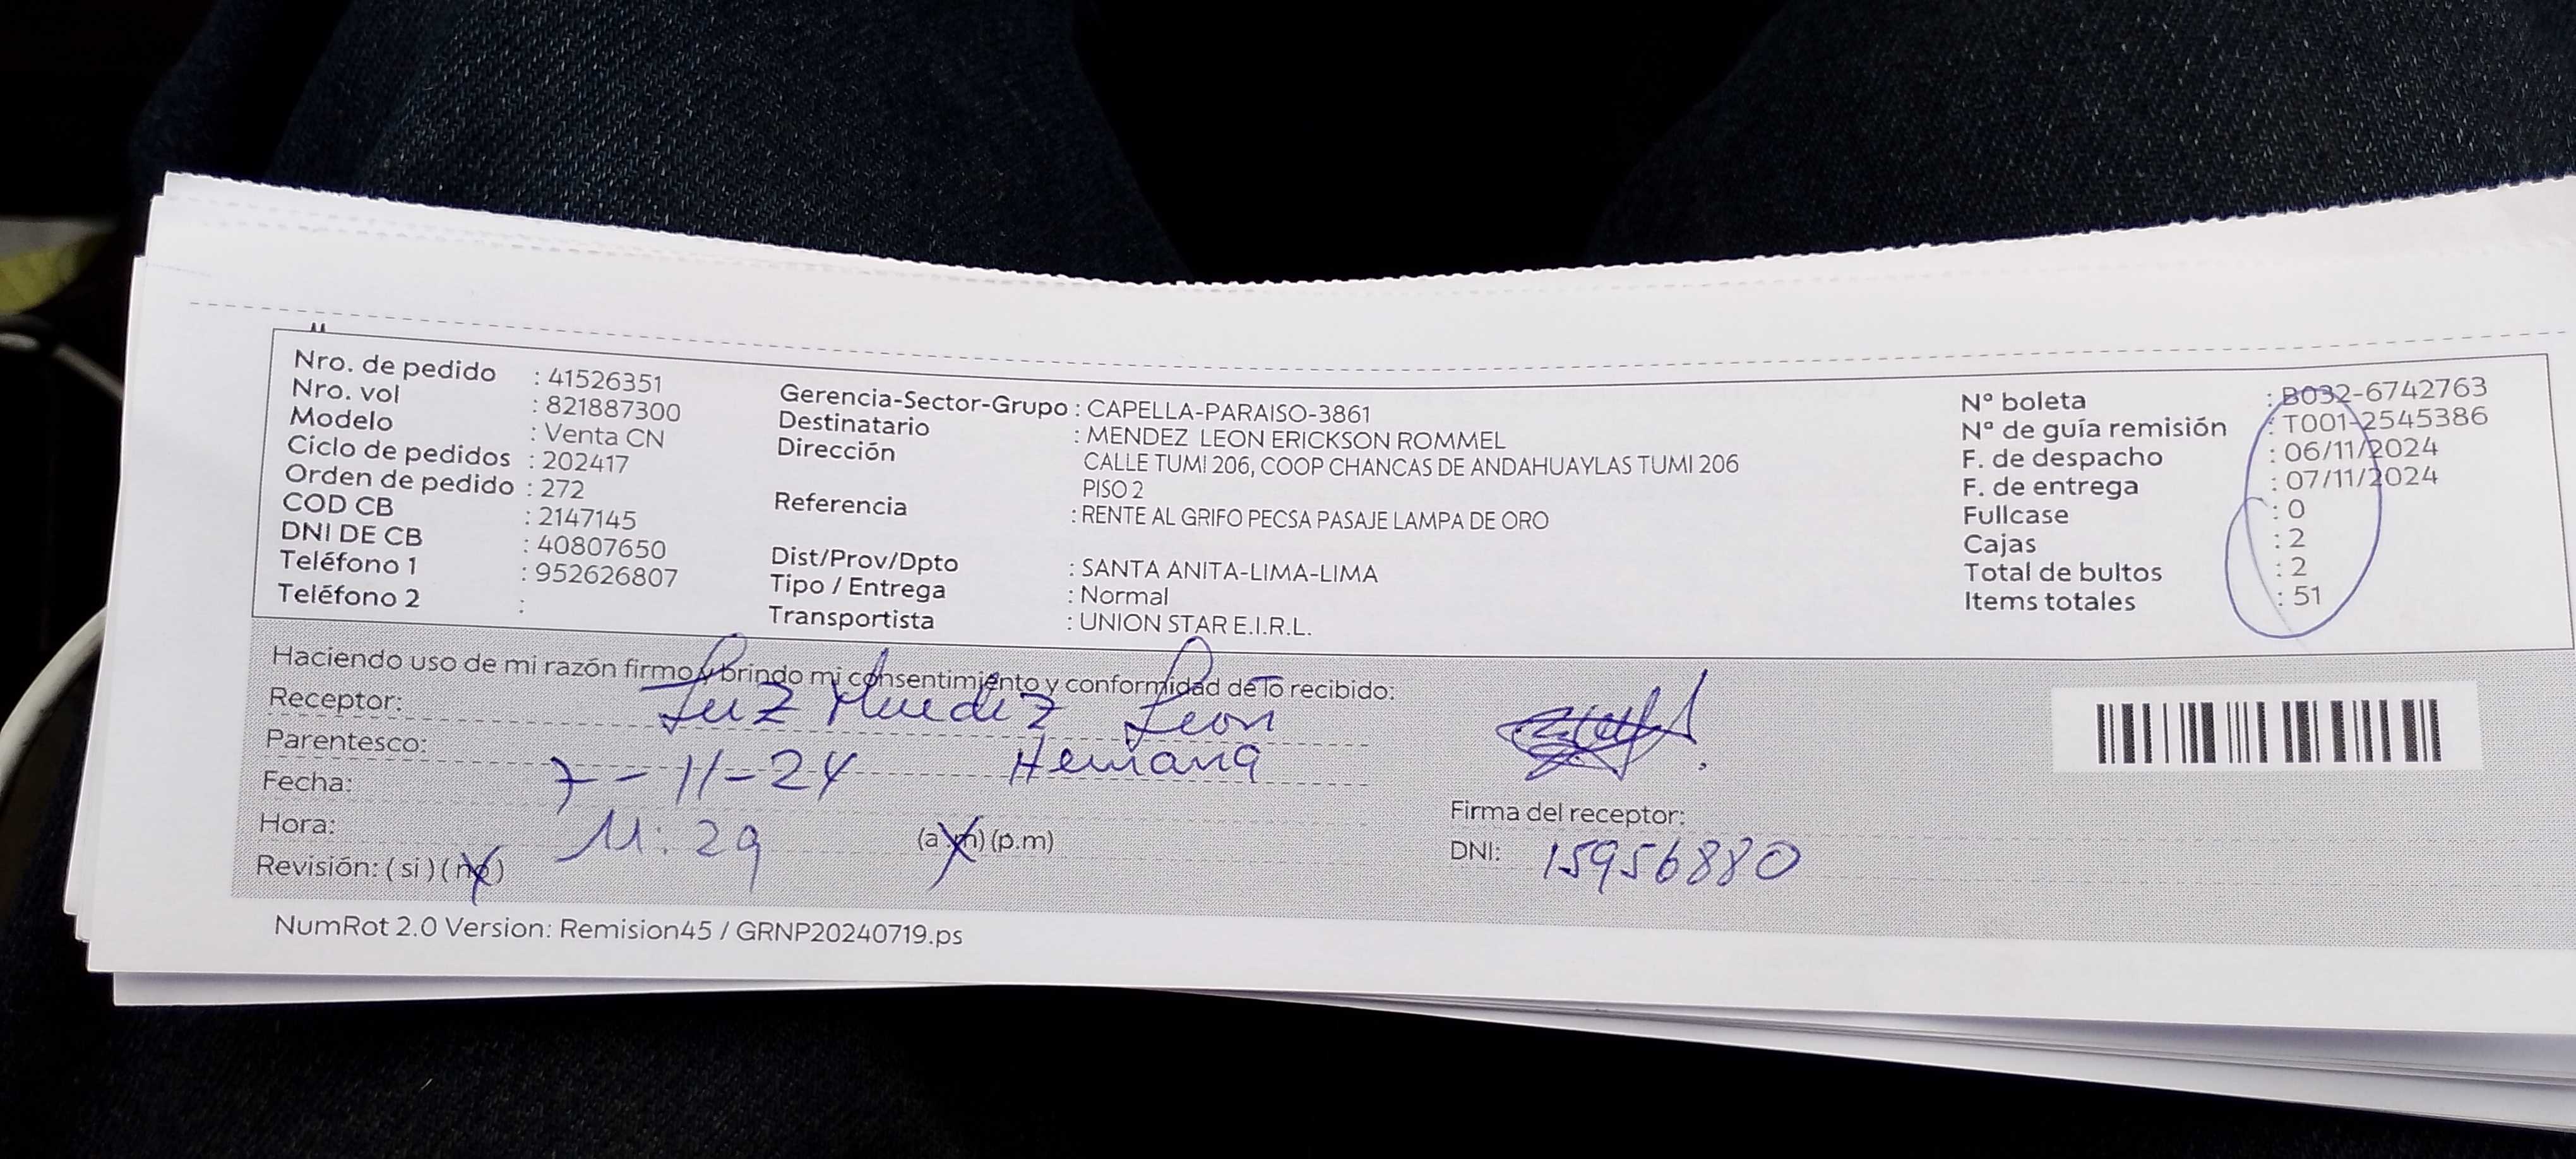 Nro. de pedido : 41526351
Nro. vol : 821887300
Modelo : Venta CN
Ciclo de pedidos : 202417
Orden de pedido : 272
COD CB : 2147145
DNI DE CB : 40807650
Teléfono 1 : 952626807
Teléfono 2 :
Gerencia-Sector-Grupo : CAPELLA-PARAISO-3861
Destinatario : MENDEZ LEON ERICKSON ROMMEL
Dirección CALLE TUMI 206, COOP CHANCAS DE ANDAHUAYLAS TUMI 206
PISO 2
Referencia : RENTE AL GRIFO PECSA PASAJE LAMPA DE ORO
Dist/Prov/Dpto : SANTA ANITA-LIMA-LIMA
Tipo / Entrega : Normal
Transportista : UNION STAR E.I.R.L.
N° boleta : B032-6742763
N° de guía remisión : T001-2545386
F. de despacho : 06/11/2024
F. de entrega : 07/11/2024
Fullcase : 0
Cajas : 2
Total de bultos : 2
Items totales : 51
Haciendo uso de mi razón firmo y brindo mi consentimiento y conformidad de lo recibido:
Receptor: Luz Mendez Leon
Parentesco: Hermana
Fecha: 7-11-24
Hora: 11:29 (a.m) (p.m)
Revisión: (si) (no)
Firma del receptor:
DNI: 15956880
NumRot 2.0 Version: Remision45 / GRNP20240719.ps